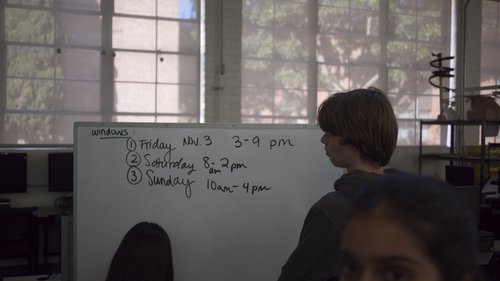 windows:
① Friday Nov. 3 3-9 pm
② Saturday 8am-2pm
③ Sunday 10am-4pm